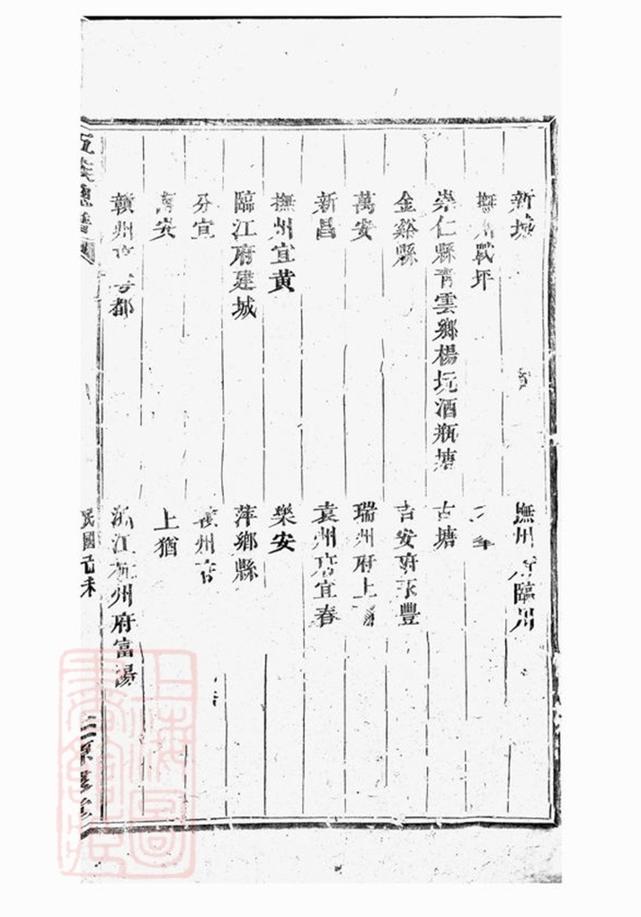 新城
撫州府臨川
撫州戰坪
崇仁縣青雲鄉楊坑酒瓶塘
古塘
金谿縣
吉安府永豐
萬安
瑞州府上
新昌
袁州府宜春
撫州宜黃
樂安
臨江府建城
萍鄉縣
分宜
州
安
上猶
贛州 雩都
浙江杭州府富陽
民國己未